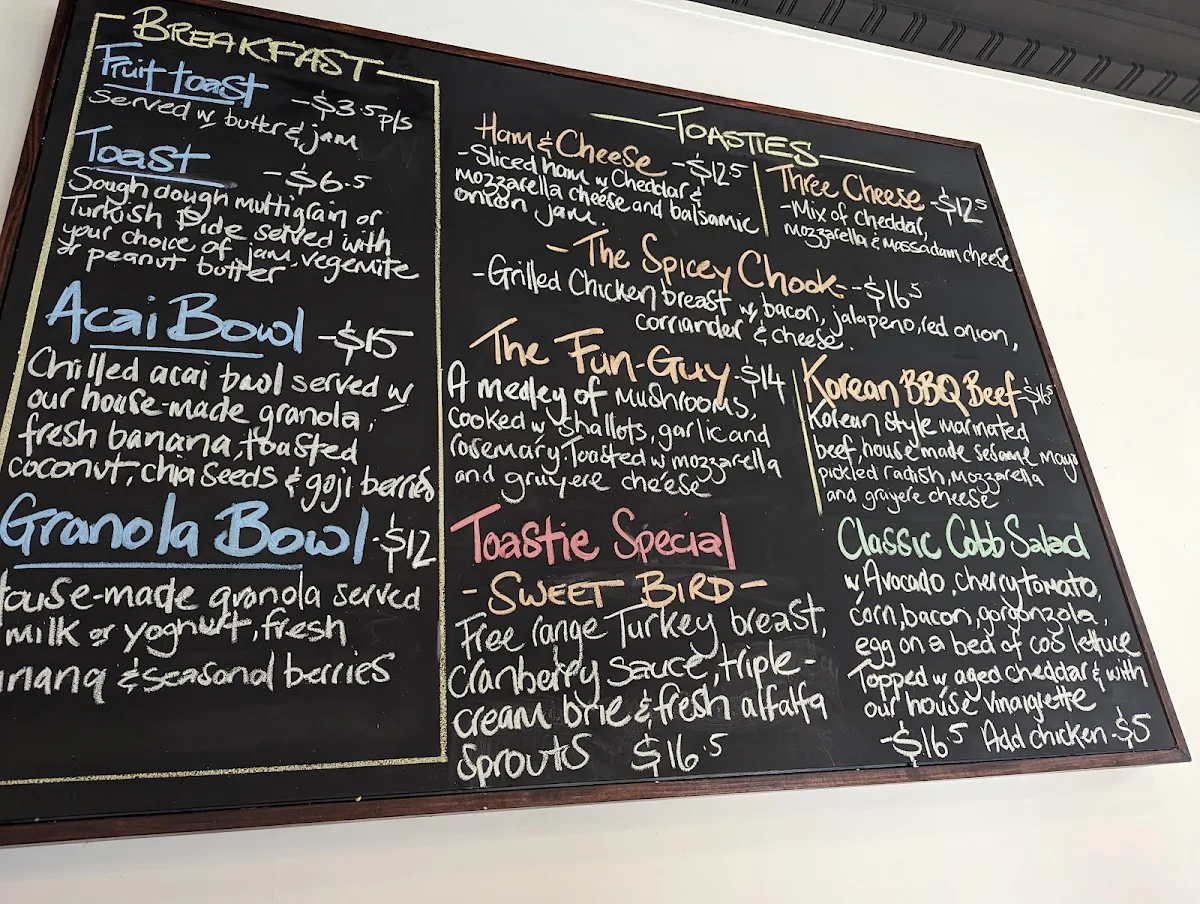 BREAKFAST
Fruit toast -$3.5 p/s
Served w butter & jam
Toast -$6.5
Sough dough multigrain or
Turkish Pide served with
your choice of jam, vegemite
or peanut butter
Acai Bowl -$15
Chilled acai bowl served w
our house-made granola,
fresh banana, toasted
coconut, chia seeds & goji berries
Granola Bowl -$12
ouse-made granola served
milk or yoghurt, fresh
anana & seasonal berries
TOASTIES
Ham & Cheese -$12.5
-Sliced ham w Cheddar &
mozzarella cheese and balsamic
onion jam.
Three Cheese -$12.5
-Mix of cheddar,
mozzarella & Massadam cheese
- The Spicey Chook - -$16.5
-Grilled Chicken breast w, bacon, jalapeno, red onion,
corriander & cheese.
The Fun-Guy -$14
A medley of mushrooms,
cooked w shallots, garlic and
rosemary. Toasted w mozzarella
and gruyere cheese
Korean BBQ Beef -$16.5
Korean style marinated
beef, house made sesame mayo
pickled radish, mozzarella
and gruyere cheese
Toastie Special
- SWEET BIRD -
Free range Turkey breast,
cranberry sauce, triple-
cream brie & fresh alfalfa
sprouts $16.5
Classic Cobb Salad
w Avocado, cherry tomato,
corn, bacon, gorgonzola,
egg on a bed of cos lettuce
Topped w aged cheddar & with
our house vinaigrette
-$16.5 Add chicken -$5